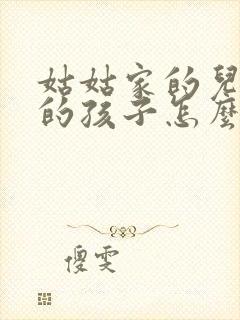 姑姑家的兒
的孩子怎麼
傻雯